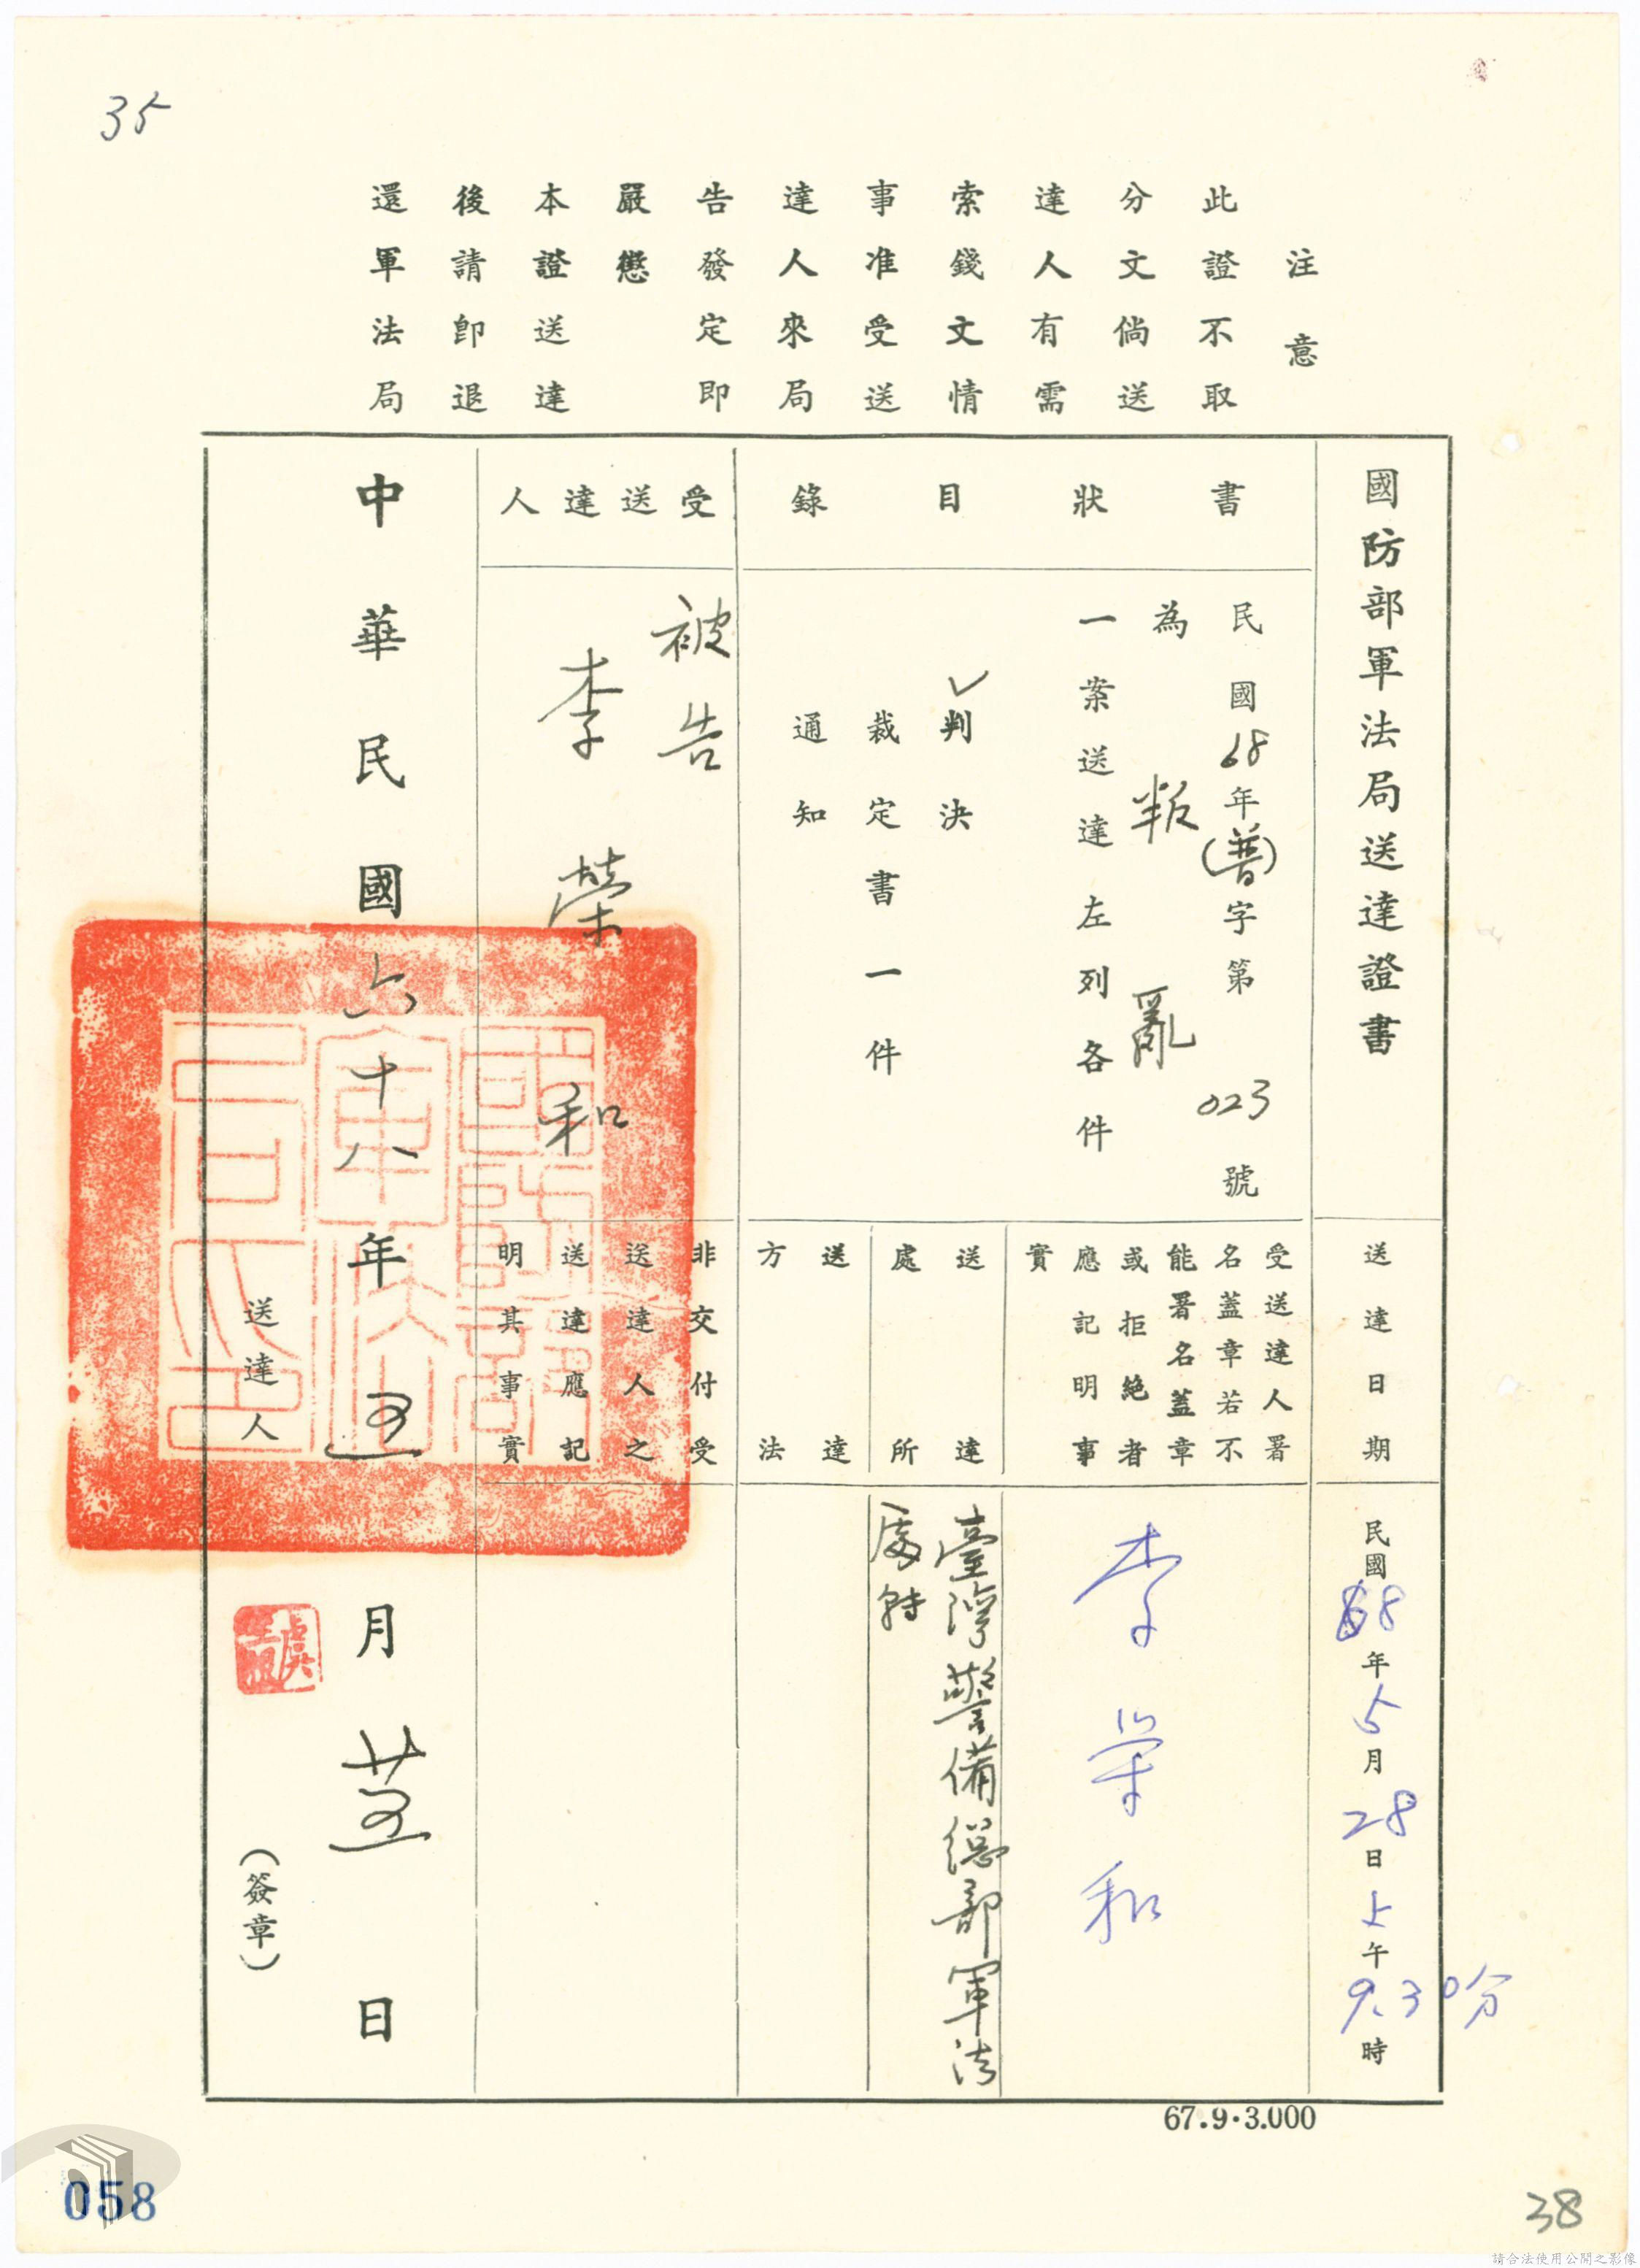 35
注意
此證不取
分文倘送
達人有需
索錢文情
事准受送
達人來局
告發定即
嚴懲
本證送達
後請即退
還軍法局
國防部軍法局送達證書
書狀目錄
民國68年(普)字第023號
為叛亂
一案送達左列各件
✓判決
裁定書一件
通知
受送達人
被告
李榮和
送達日期
民國68年5月28日上午9.30分時
受送達人署
名蓋章若不
能署名蓋章
或拒絕者
應記明事
實
李荣和
送達
處所
臺灣警備總部軍法
處轉
送達
方法
非交付受
送達人之
送達應記
明其事實
中華民國六十八年五月廿五日
國防部軍法局之印
送達人
(簽章)
67.9.3.000
058
38
請合法使用公開之影像